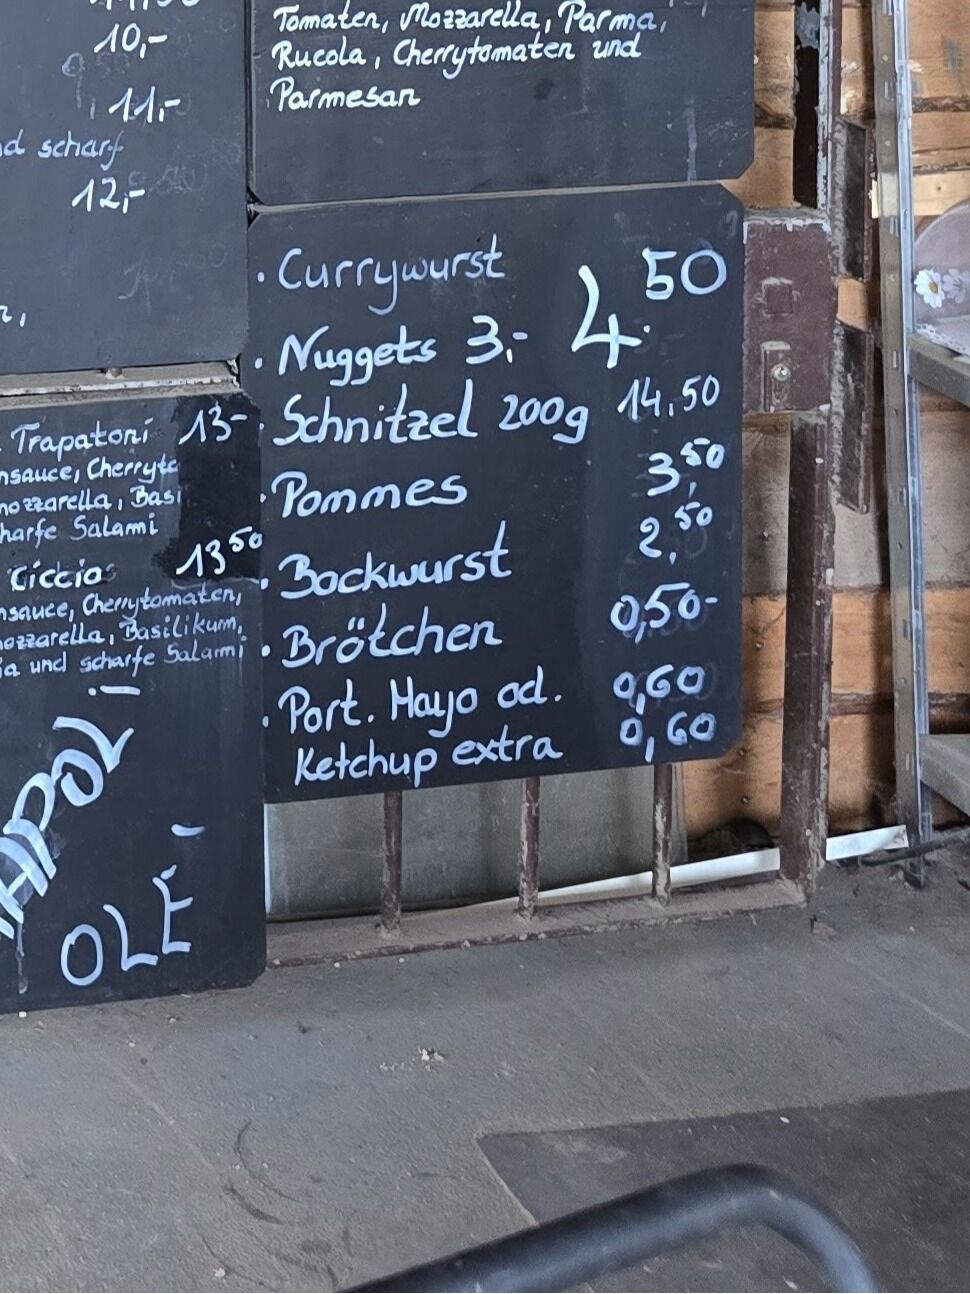 10,-
11,-
nd scharf
12,-
Tomaten, Mozzarella, Parma,
Rucola, Cherrytomaten und
Parmesan
· Currywurst 4.50
· Nuggets 3,-
· Schnitzel 200g 14,50
· Pommes 3,50
· Bockwurst 2,50
· Brötchen 0,50-
· Port. Mayo od. 0,60
Ketchup extra 0,60
Trapatoni 13-
nsauce, Cherryto
mozzarella, Basi
harfe Salami
Ciccio 13 50
nsauce, Cherrytomaten,
mozzarella, Basilikum,
ia und scharfe Salami
OLÉ